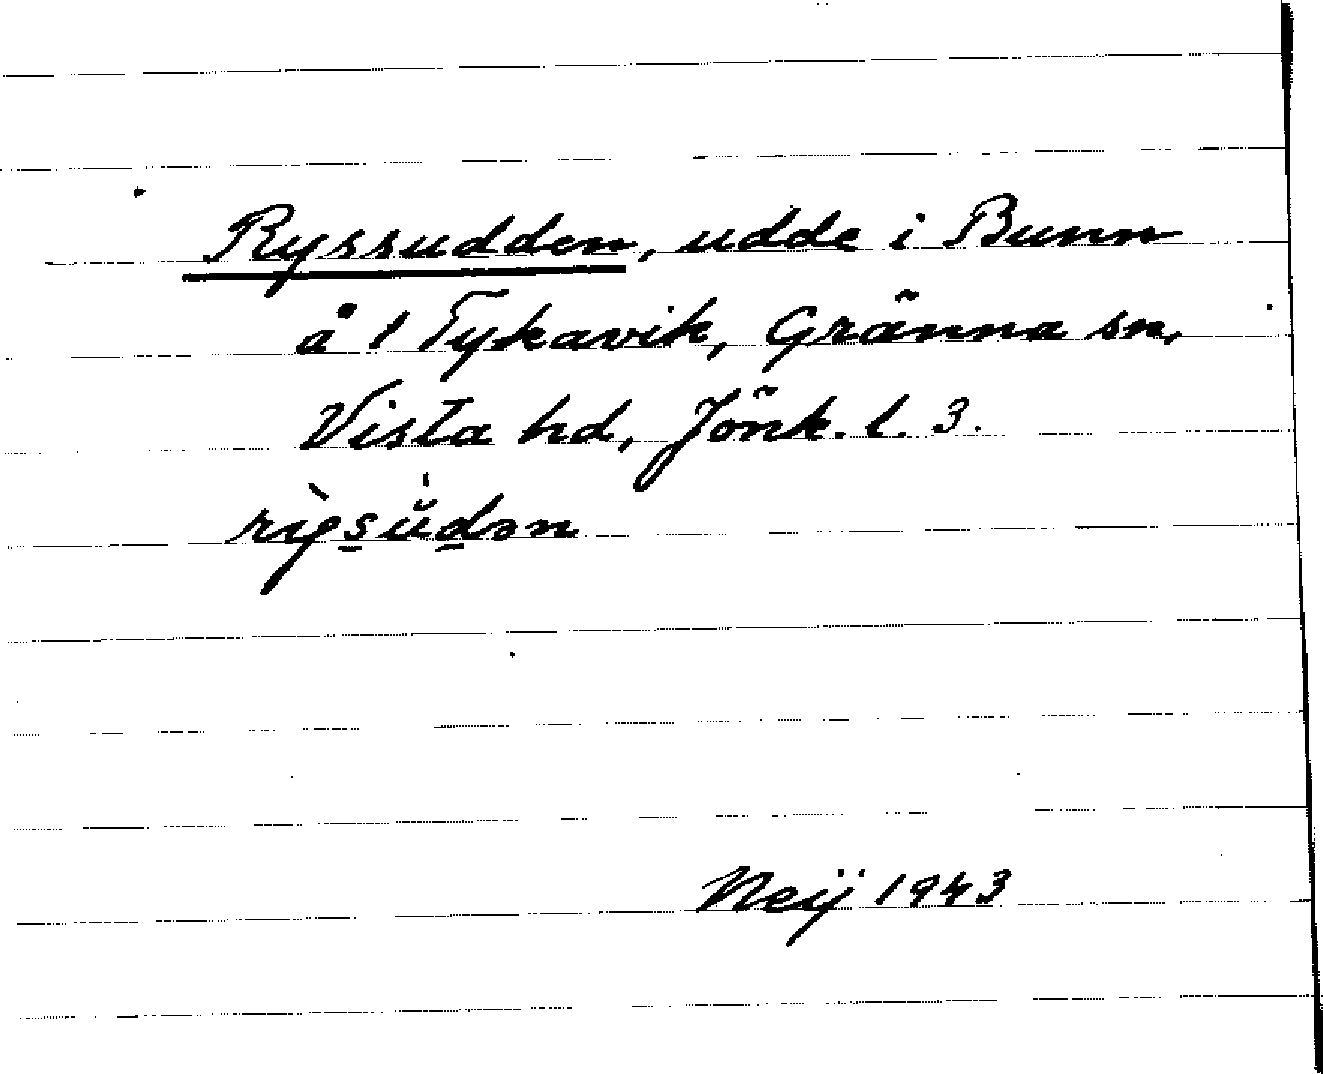 Ryssudden, udde i Bunn
å 1 Tykavik, Gränna sn,
Vista hd, Jönk. l. 3.
Neij 1943